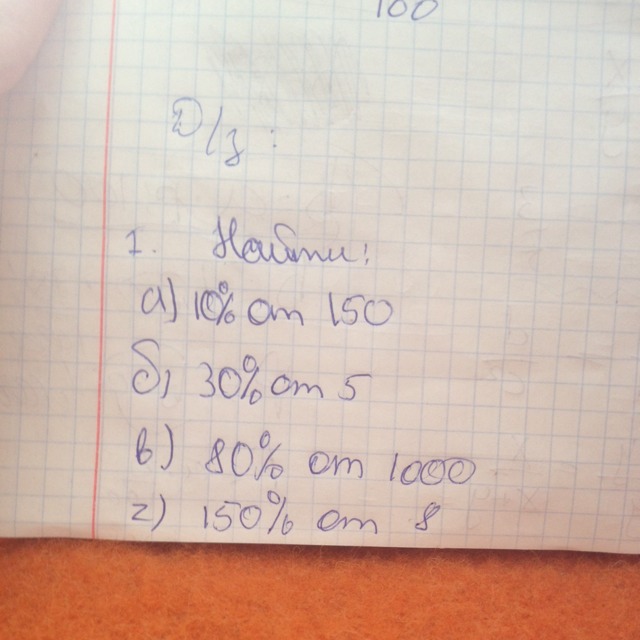 100
Д/з:
1. Найти:
а) 10% от 150
б) 30% от 5
в) 80% от 1000
г) 150% от 8